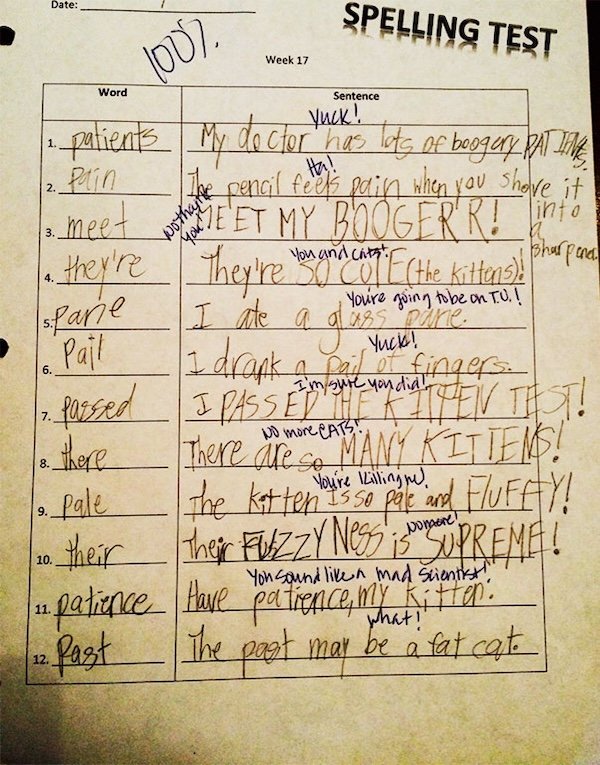 Date:
SPELLING TEST
100%
Week 17
Word Sentence
Yuck!
1. patients My doctor has lots of boogery PATIENTS.
Ha!
2. Pain The pencil feels pain when you shove it into a sharpener.
No thank you!
3. meet MEET MY BOOGERR!
You and cats!
4. they're They're SO CUTE (the kittens)!
You're going to be on T.V.!
5. Pane I ate a glass pane.
Yuck!
6. Pail I drank a pail of fingers.
I'm sure you did!
7. passed I PASSED THE KITTEN TEST!
NO more CATS!
8. there There are so MANY KITTENS!
You're killing me!
9. Pale The kitten is so pale and FLUFFY!
No more!
10. their Their FUZZYNess is SUPREME!
You sound like a mad scientist!
11. patience Have patience, my kitten.
What!
12. Past The past may be a fat cat.